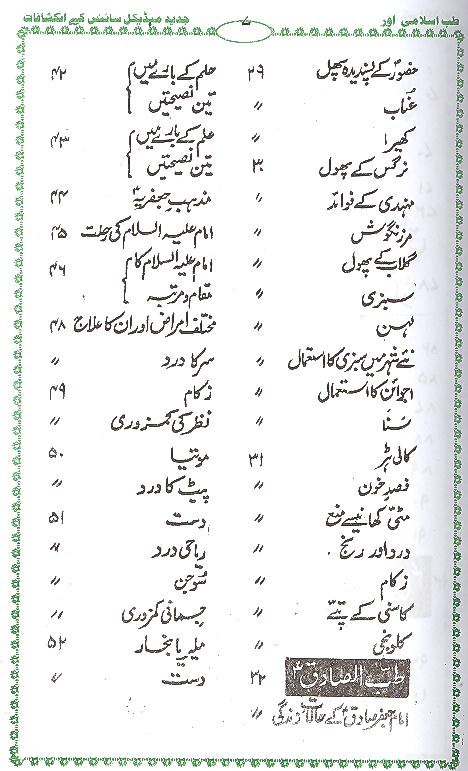 طب اسلامی اور
۷
جدید میڈیکل سائنس کے انکشافات
حضورؐ کے پسندیدہ پھل ۲۹
عناب 〃
کھیرا 〃
نرگس کے پھول ۳۰
مہندی کے فوائد 〃
مرزنگوش 〃
گلاب کے پھول 〃
سبزی 〃
لہسن 〃
نئے شہر میں سبزی کا استعمال 〃
اجوائن کا استعمال 〃
سنا 〃
کالی ہڑ ۳۱
فصدِ خون 〃
مٹی کھانیسے منع 〃
درد اور رنج 〃
زکام 〃
کاسنی کے پتے 〃
کلونجی 〃
طب الصادقؑ ۳۲
امام جعفر صادقؑ کے حالات زندگی 〃
علم کے بارے میں ۴۲
تین نصیحتیں
علم کے بارے میں ۴۳
تین نصیحتیں
مذہب جعفریہ ۴۴
امام علیہ السلام کی رحلت ۴۵
امام علیہ السلام کا مقام و مرتبہ ۴۶
مختلف امراض اور ان کا علاج ۴۸
سر کا درد 〃
زکام ۴۹
نظر کی کمزوری 〃
موتیا ۵۰
پیٹ کا درد 〃
دست ۵۱
ریاحی درد 〃
سوجن 〃
جسمانی کمزوری 〃
ملیریا بخار ۵۲
دست 〃